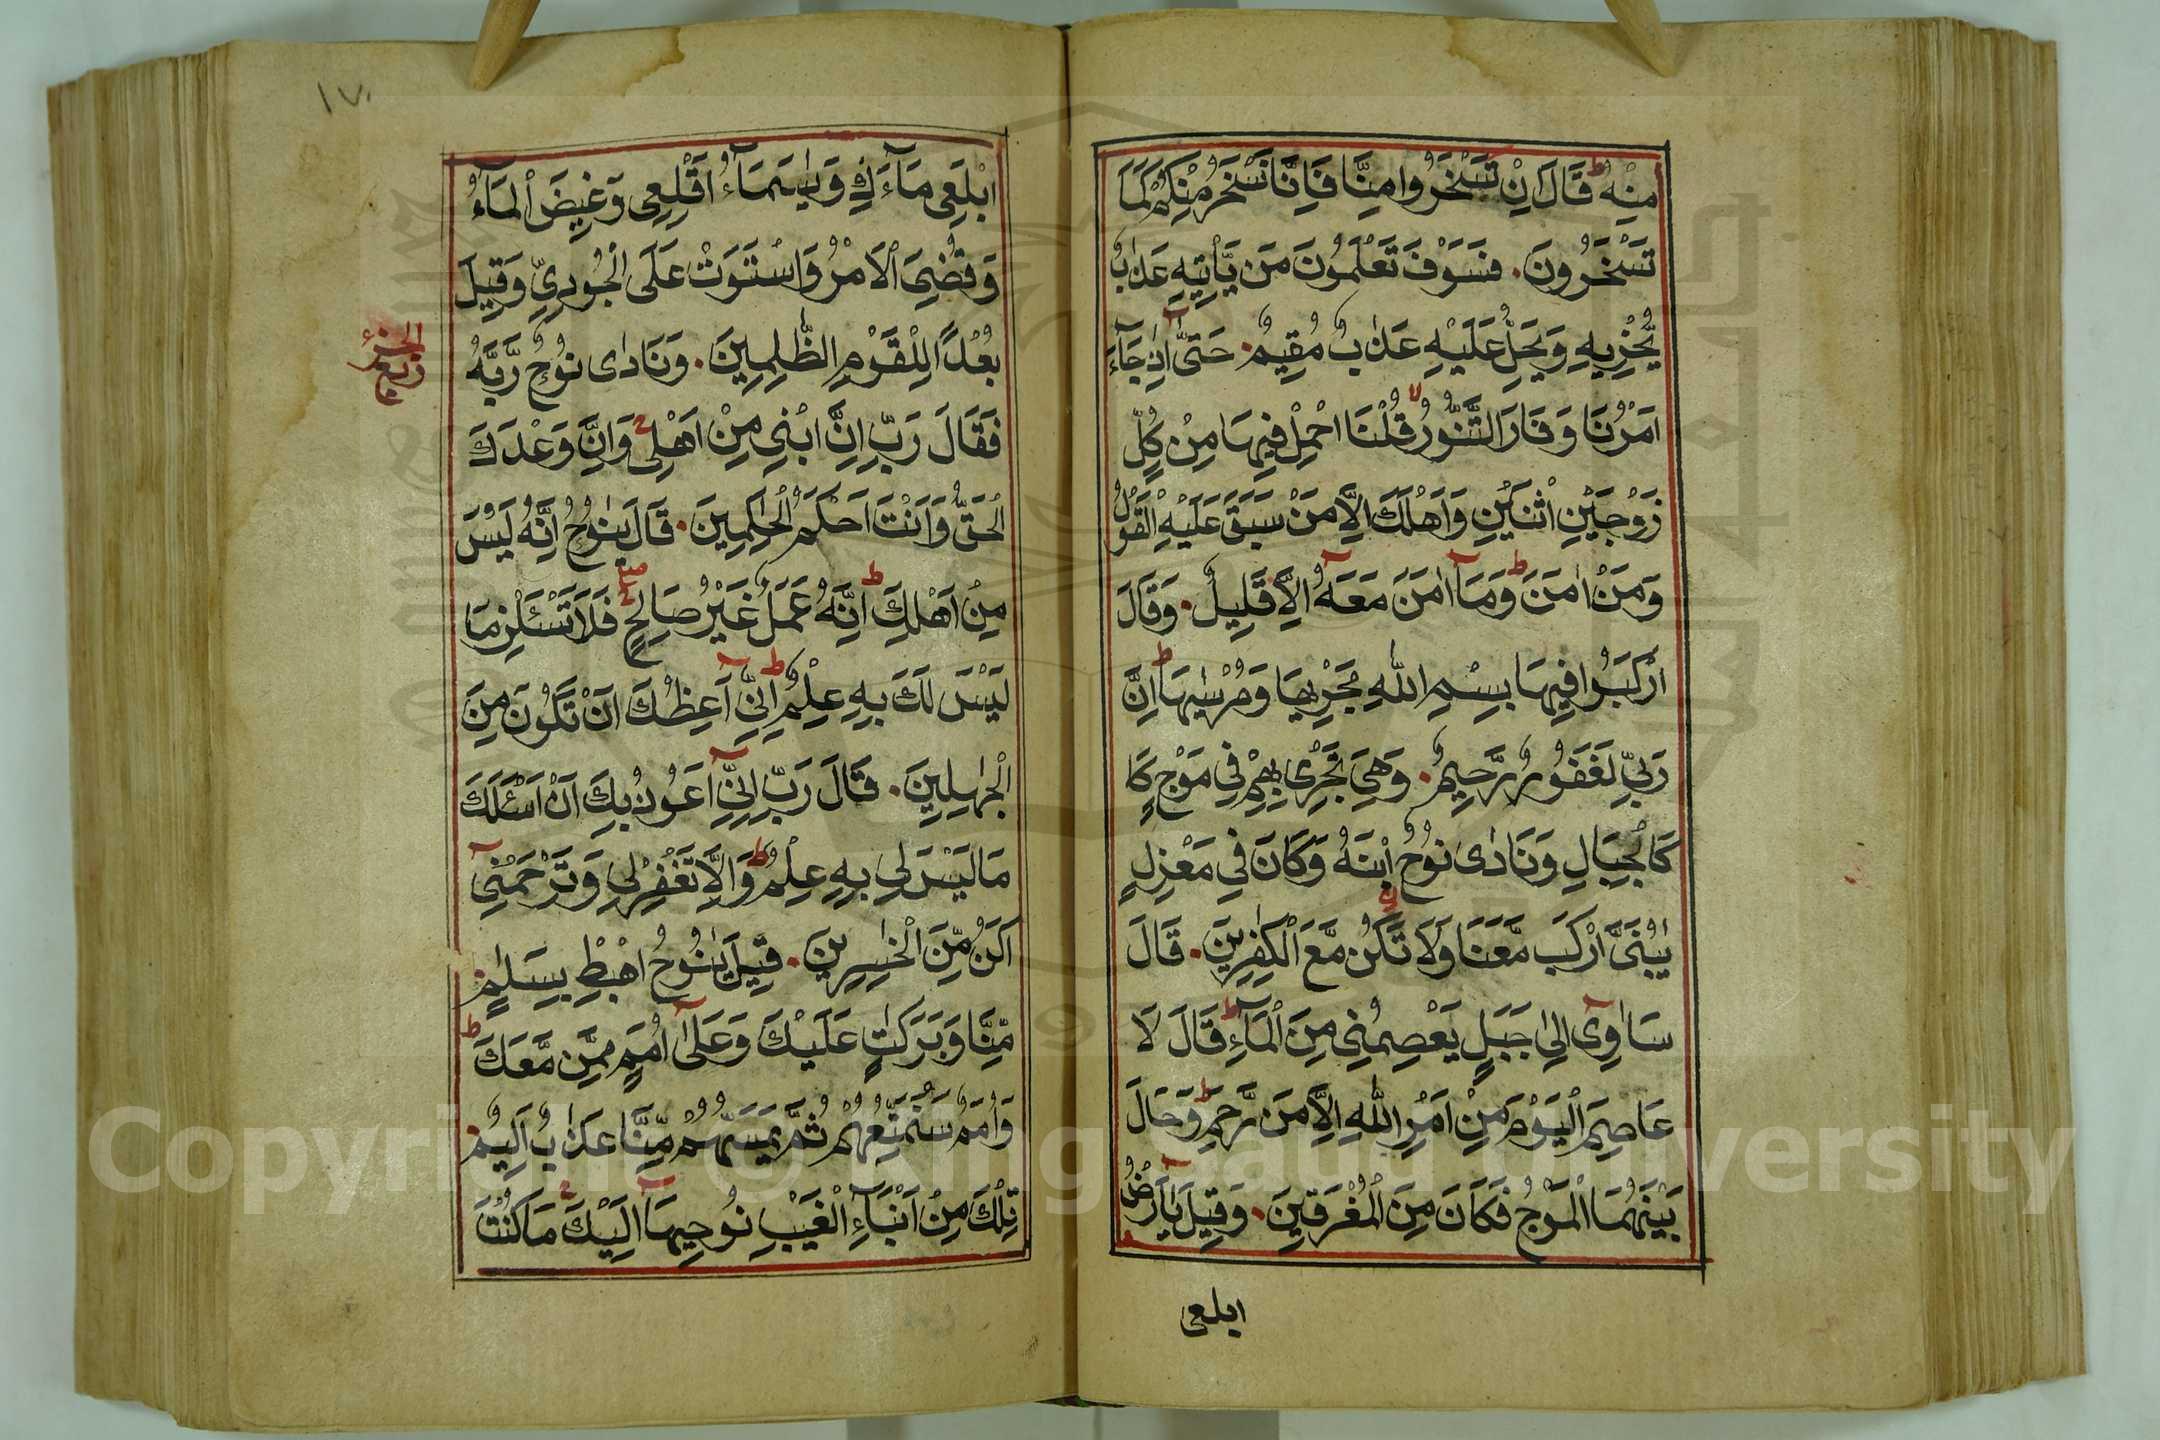 مِنْهُ ط قَالَ اِنْ تَسْخَرُوْا مِنَّا فَاِنَّا نَسْخَرُ مِنْكُمْ كَمَا
تَسْخَرُوْنَ۰ فَسَوْفَ تَعْلَمُوْنَ مَنْ يَّاْتِيْهِ عَذَابٌ
يُّخْزِيْهِ وَيَحِلُّ عَلَيْهِ عَذَابٌ مُّقِيْمٌ۰ حَتّٰٓى اِذَا جَآءَ
اَمْرُنَا وَفَارَ التَّنُّوْرُ لا قُلْنَا احْمِلْ فِيْهَا مِنْ كُلٍّ
زَوْجَيْنِ اثْنَيْنِ وَاَهْلَكَ اِلَّا مَنْ سَبَقَ عَلَيْهِ الْقَوْلُ
وَمَنْ اٰمَنَ ط وَمَآ اٰمَنَ مَعَهٗٓ اِلَّا قَلِيْلٌ۰ وَقَالَ
ارْكَبُوْا فِيْهَا بِسْمِ اللّٰهِ مَجْرٖىهَا وَمُرْسٰىهَا ط اِنَّ
رَبِّيْ لَغَفُوْرٌ رَّحِيْمٌ۰ وَهِيَ تَجْرِيْ بِهِمْ فِيْ مَوْجٍ كَا
كَالْجِبَالِ وَنَادٰى نُوْحُ ابْنَهٗ وَكَانَ فِيْ مَعْزِلٍ
يّٰبُنَيَّ ارْكَبْ مَّعَنَا وَلَا تَكُنْ مَّعَ الْكٰفِرِيْنَ۰ قَالَ
سَاٰوِيْٓ اِلٰى جَبَلٍ يَّعْصِمُنِيْ مِنَ الْمَآءِ ط قَالَ لَا
عَاصِمَ الْيَوْمَ مِنْ اَمْرِ اللّٰهِ اِلَّا مَنْ رَّحِمَ ط وَحَالَ
بَيْنَهُمَا الْمَوْجُ فَكَانَ مِنَ الْمُغْرَقِيْنَ۰ وَقِيْلَ يٰٓاَرْضُ
ابلعى
١٧٠
ابْلَعِيْ مَآءَكِ وَيٰسَمَآءُ اَقْلِعِيْ وَغِيْضَ الْمَآءُ
وَقُضِيَ الْاَمْرُ وَاسْتَوَتْ عَلَى الْجُوْدِيِّ وَقِيْلَ
بُعْدًا لِّلْقَوْمِ الظّٰلِمِيْنَ۰ وَنَادٰى نُوْحٌ رَّبَّهٗ
فَقَالَ رَبِّ اِنَّ ابْنِيْ مِنْ اَهْلِيْ وَاِنَّ وَعْدَكَ
الْحَقُّ وَاَنْتَ اَحْكَمُ الْحٰكِمِيْنَ۰ قَالَ يٰنُوْحُ اِنَّهٗ لَيْسَ
مِنْ اَهْلِكَ ط اِنَّهٗ عَمَلٌ غَيْرُ صَالِحٍ فَلَا تَسْئَلْنِ مَا
لَيْسَ لَكَ بِهٖ عِلْمٌ ط اِنِّيْٓ اَعِظُكَ اَنْ تَكُوْنَ مِنَ
الْجٰهِلِيْنَ۰ قَالَ رَبِّ اِنِّيْٓ اَعُوْذُ بِكَ اَنْ اَسْئَلَكَ
مَا لَيْسَ لِيْ بِهٖ عِلْمٌ ط وَاِلَّا تَغْفِرْ لِيْ وَتَرْحَمْنِيْٓ
اَكُنْ مِّنَ الْخٰسِرِيْنَ۰ قِيْلَ يٰنُوْحُ اهْبِطْ بِسَلٰمٍ
مِّنَّا وَبَرَكٰتٍ عَلَيْكَ وَعَلٰٓى اُمَمٍ مِّمَّنْ مَّعَكَ ط
وَاُمَمٌ سَنُمَتِّعُهُمْ ثُمَّ يَمَسُّهُمْ مِّنَّا عَذَابٌ اَلِيْمٌ۰
تِلْكَ مِنْ اَنْبَآءِ الْغَيْبِ نُوْحِيْهَآ اِلَيْكَ مَا كُنْتَ
ربع
الجزء
Copyright © King Saud University